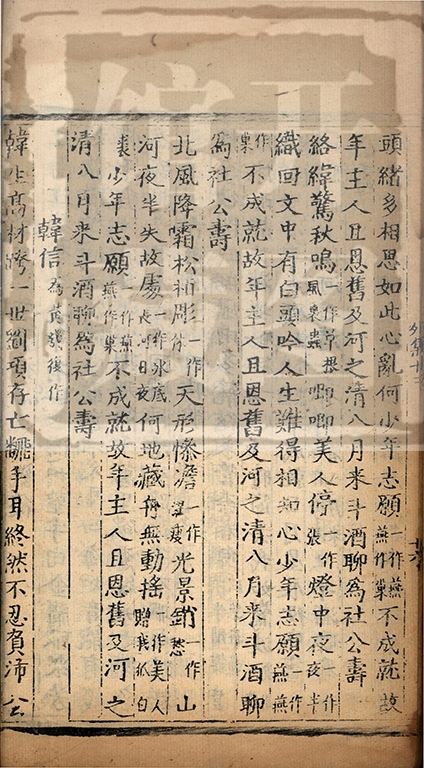 頭緒多相思如此心亂何少年志願一作燕燕作巢不成就故
年主人且恩舊及河之清八月来斗酒聊為社公壽
絡緯驚秋鳴一作草根風裏蟲唧唧美人停一作張燈中夜一作夜半
織回文中有白頭吟人生難得相知心少年志願一作燕燕
作巢不成就故年主人且恩舊及河之清八月来斗酒聊
為社公壽
北風降霜松柏彫一作天形慘澹一作光景銷一作愁山
河夜半失故處一作冰底何地藏舟無動搖一作美人贈我狐白
裘少年志願一作燕燕作巢不成就故年主人且恩舊及河之
清八月来斗酒聊為社公壽
韓信為黃後作
韓生高材跨一世劉項存亡翻手耳終然不忍負沛公